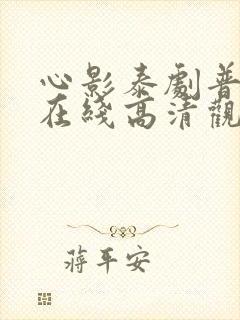 心影泰劇普
在綫高清觀
蔣平安